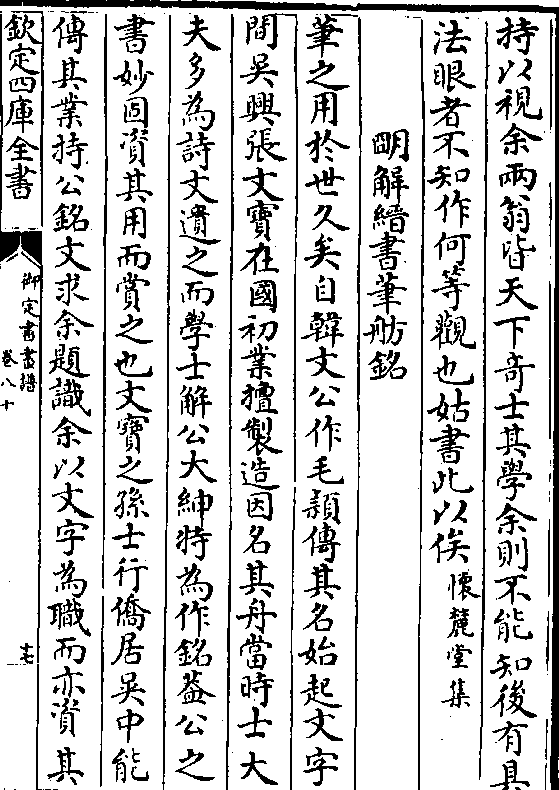 持以視余兩翁皆天下奇士其學余則不能知後有具
法眼者不知作何等觀也姑書此以俟懷麓堂集
明解縉書筆舫銘
筆之用於世久矣自韓文公作毛頴傳其名始起文字
間吳興張文寶在國初業擅製造因名其舟當時士大
夫多為詩文遺之而學士解公大紳特為作銘葢公之
書妙固資其用而賞之也文寶之孫士行僑居吳中能
傳其業持公銘文求余題識余以文字為職而亦資其
欽定四庫全書
御定書畫譜
卷八十
十七